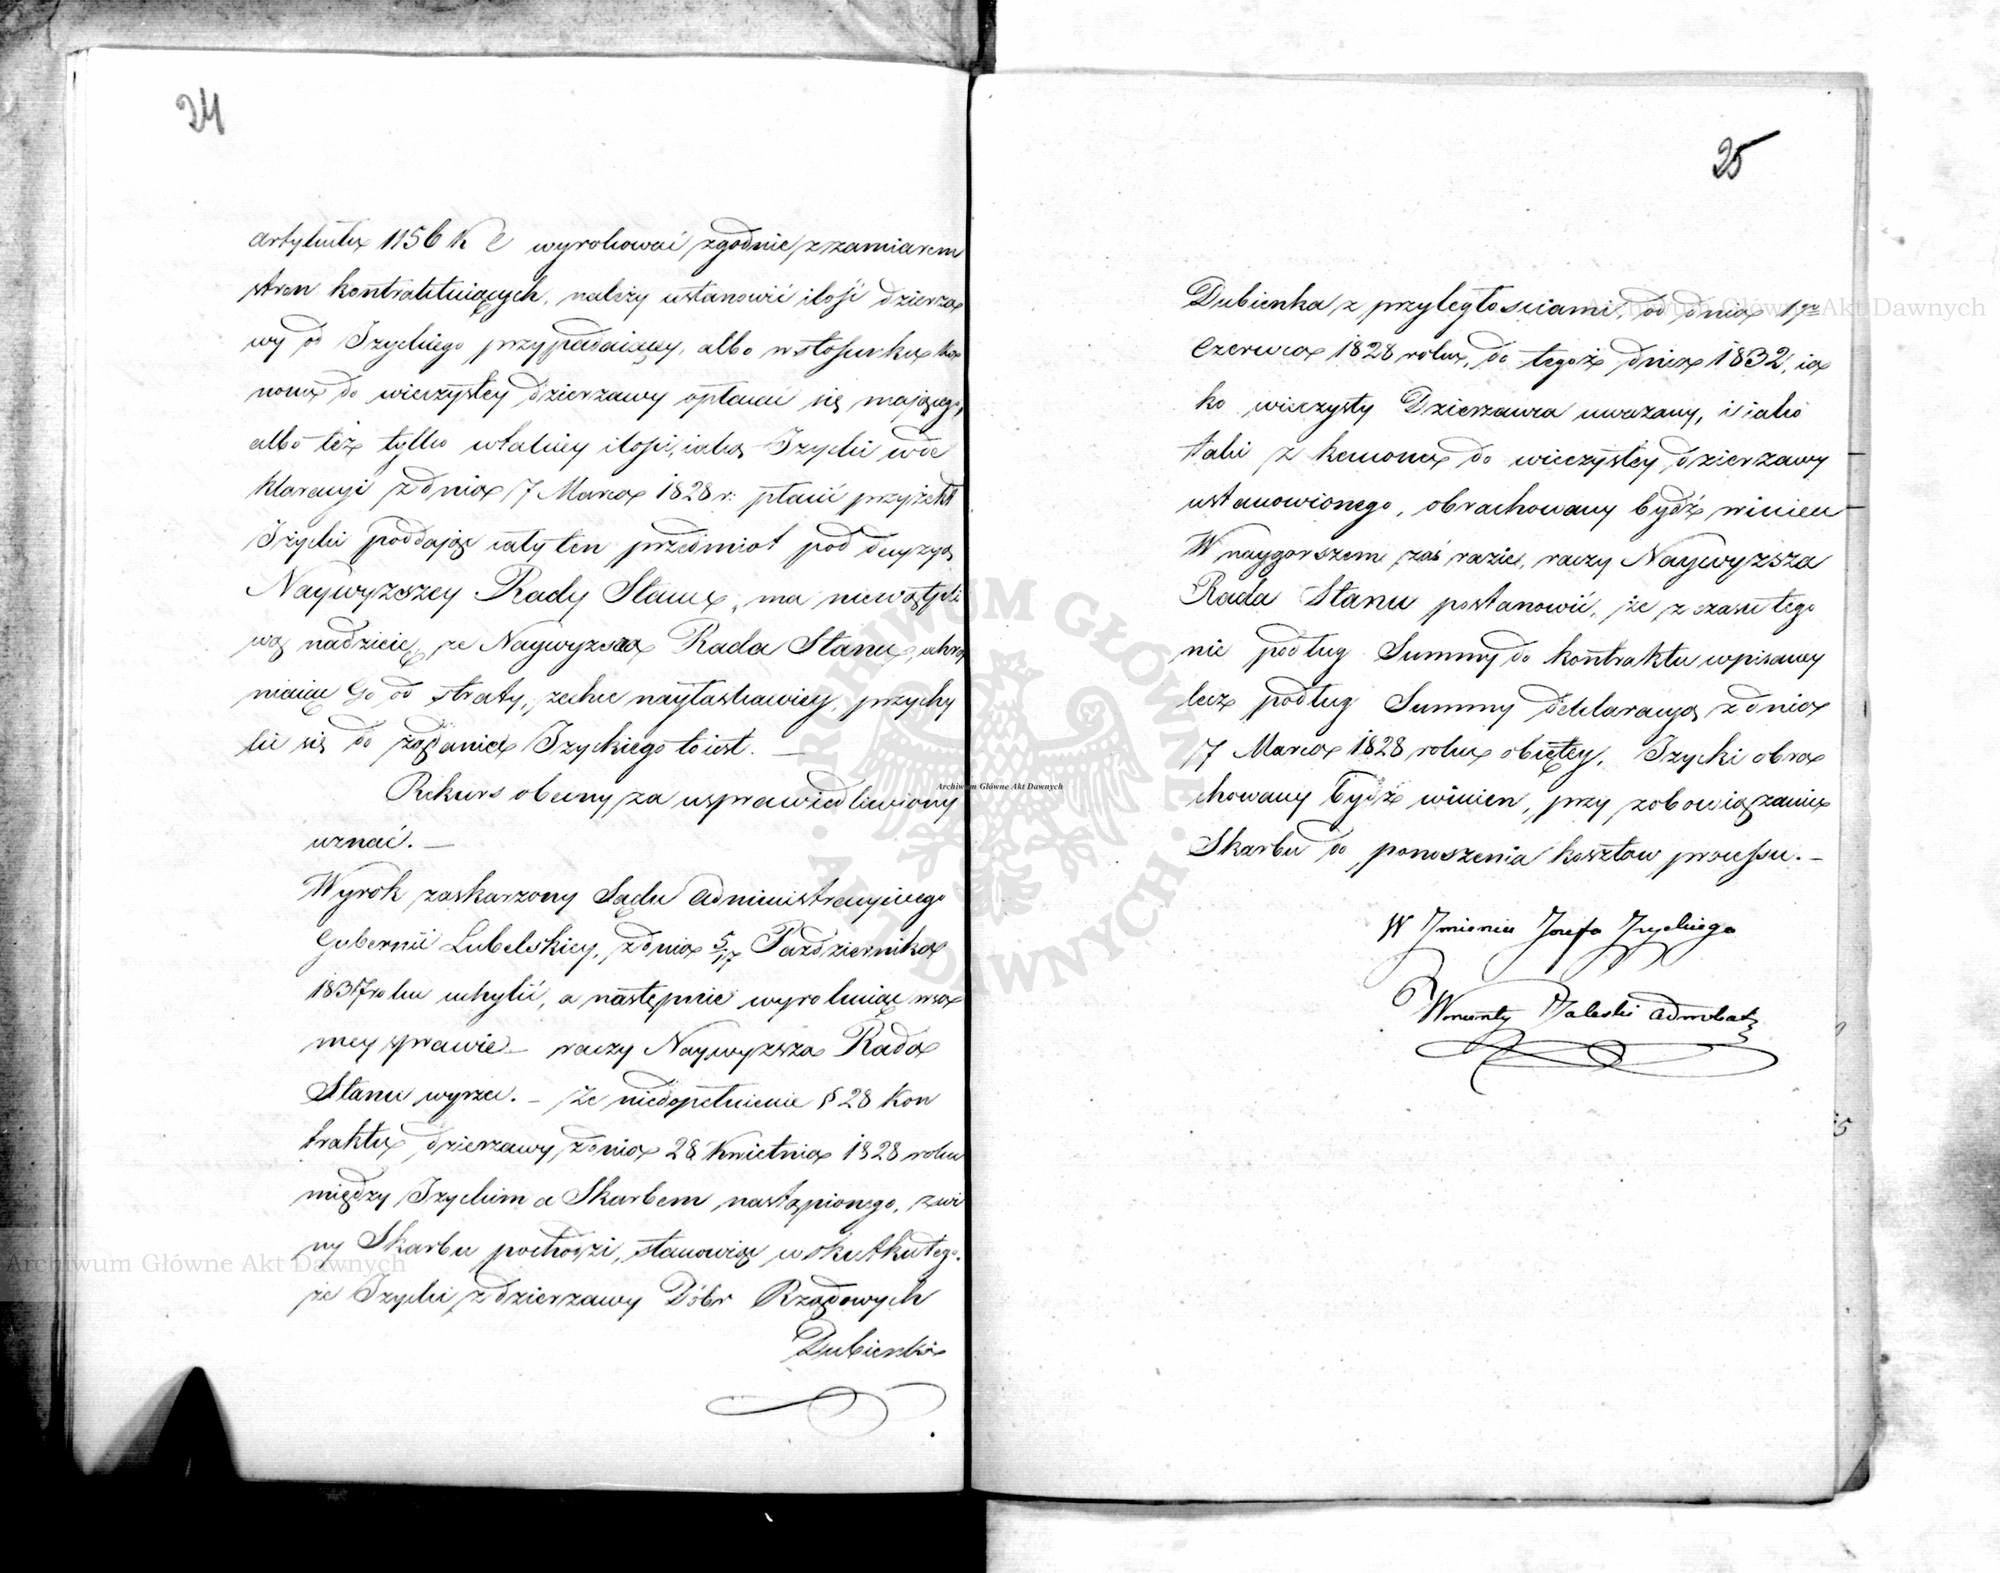 24
artykułu 1156 K C wyrokować zgodnie z zamiarem
stron kontraktuiących, należy ustanowić ilość dzierza
wy od Izyckiego przypadaiącey, albo w stosunku ka
nonu do wieczystey dzierzawy opłacać się mającego,
albo też tylko w takiey ilości, iaką Izycki w de
klaracyi z dnia 7 Marca 1828 r. płacić przyrzekł
Izycki poddając cały ten przedmiot pod decyzyą
Naywyższey Rady Stanu, ma niewątpli
wą nadzieię, że Naywyzsza Rada Stanu, uchra
niaiąc Go od straty, zechce nayłaskawiey, przychy
lić się do żądania Izyckiego to iest. —
Rekurs obecny za usprawiedliwiony
uznać. —
Wyrok zaskarzony Sądu Administracyinego
Gubernii Lubelskiey, z dnia 5/17 Pazdziernika
1837 roku uchylić, a następnie wyrokuiąc w sa
mey sprawie — raczy Naywyzsza Rada
Stanu wyrzec. — Ze niedopełnienie § 28 Kon
traktu dzierzawy z dnia 28 Kwietnia 1828 roku
między Izyckim a Skarbem nastąpionego, z wi
ny Skarbu pochodzi, stanowiąc w skutku tego.
że Izycki z dzierzawy Dóbr Rządowych
Dubienka
25
Dubienka z przyległosciami, od dnia 1go
Czerwca 1828 roku, do tegoż dnia 1832, ia
ko wieczysty Dzierzawca uwazany, i iako
taki z kanonu do wieczystey dzierzawy
ustanowionego, obrachowany bydź winien
W naygorszem zaś razie, raczy Naywyzsza
Rada Stanu postanowić, że z czasu tego
nie podług Summy do kontraktu wpisaney
lecz podług Summy deklaracyą z dnia
7 Marca 1828 roku obiętey, Izycki obra
chowany bydź winien, przy zobowiązaniu
Skarbu do ponoszenia kosztow processu. —
W Imieniu Jozefa Izyckiego
Wincenty Zaleski Adwokat
Archiwum Główne Akt Dawnych
Archiwum Główne Akt Dawnych
Archiwum Główne Akt Dawnych
ARCHIWUM GŁÓWNE AKT DAWNYCH